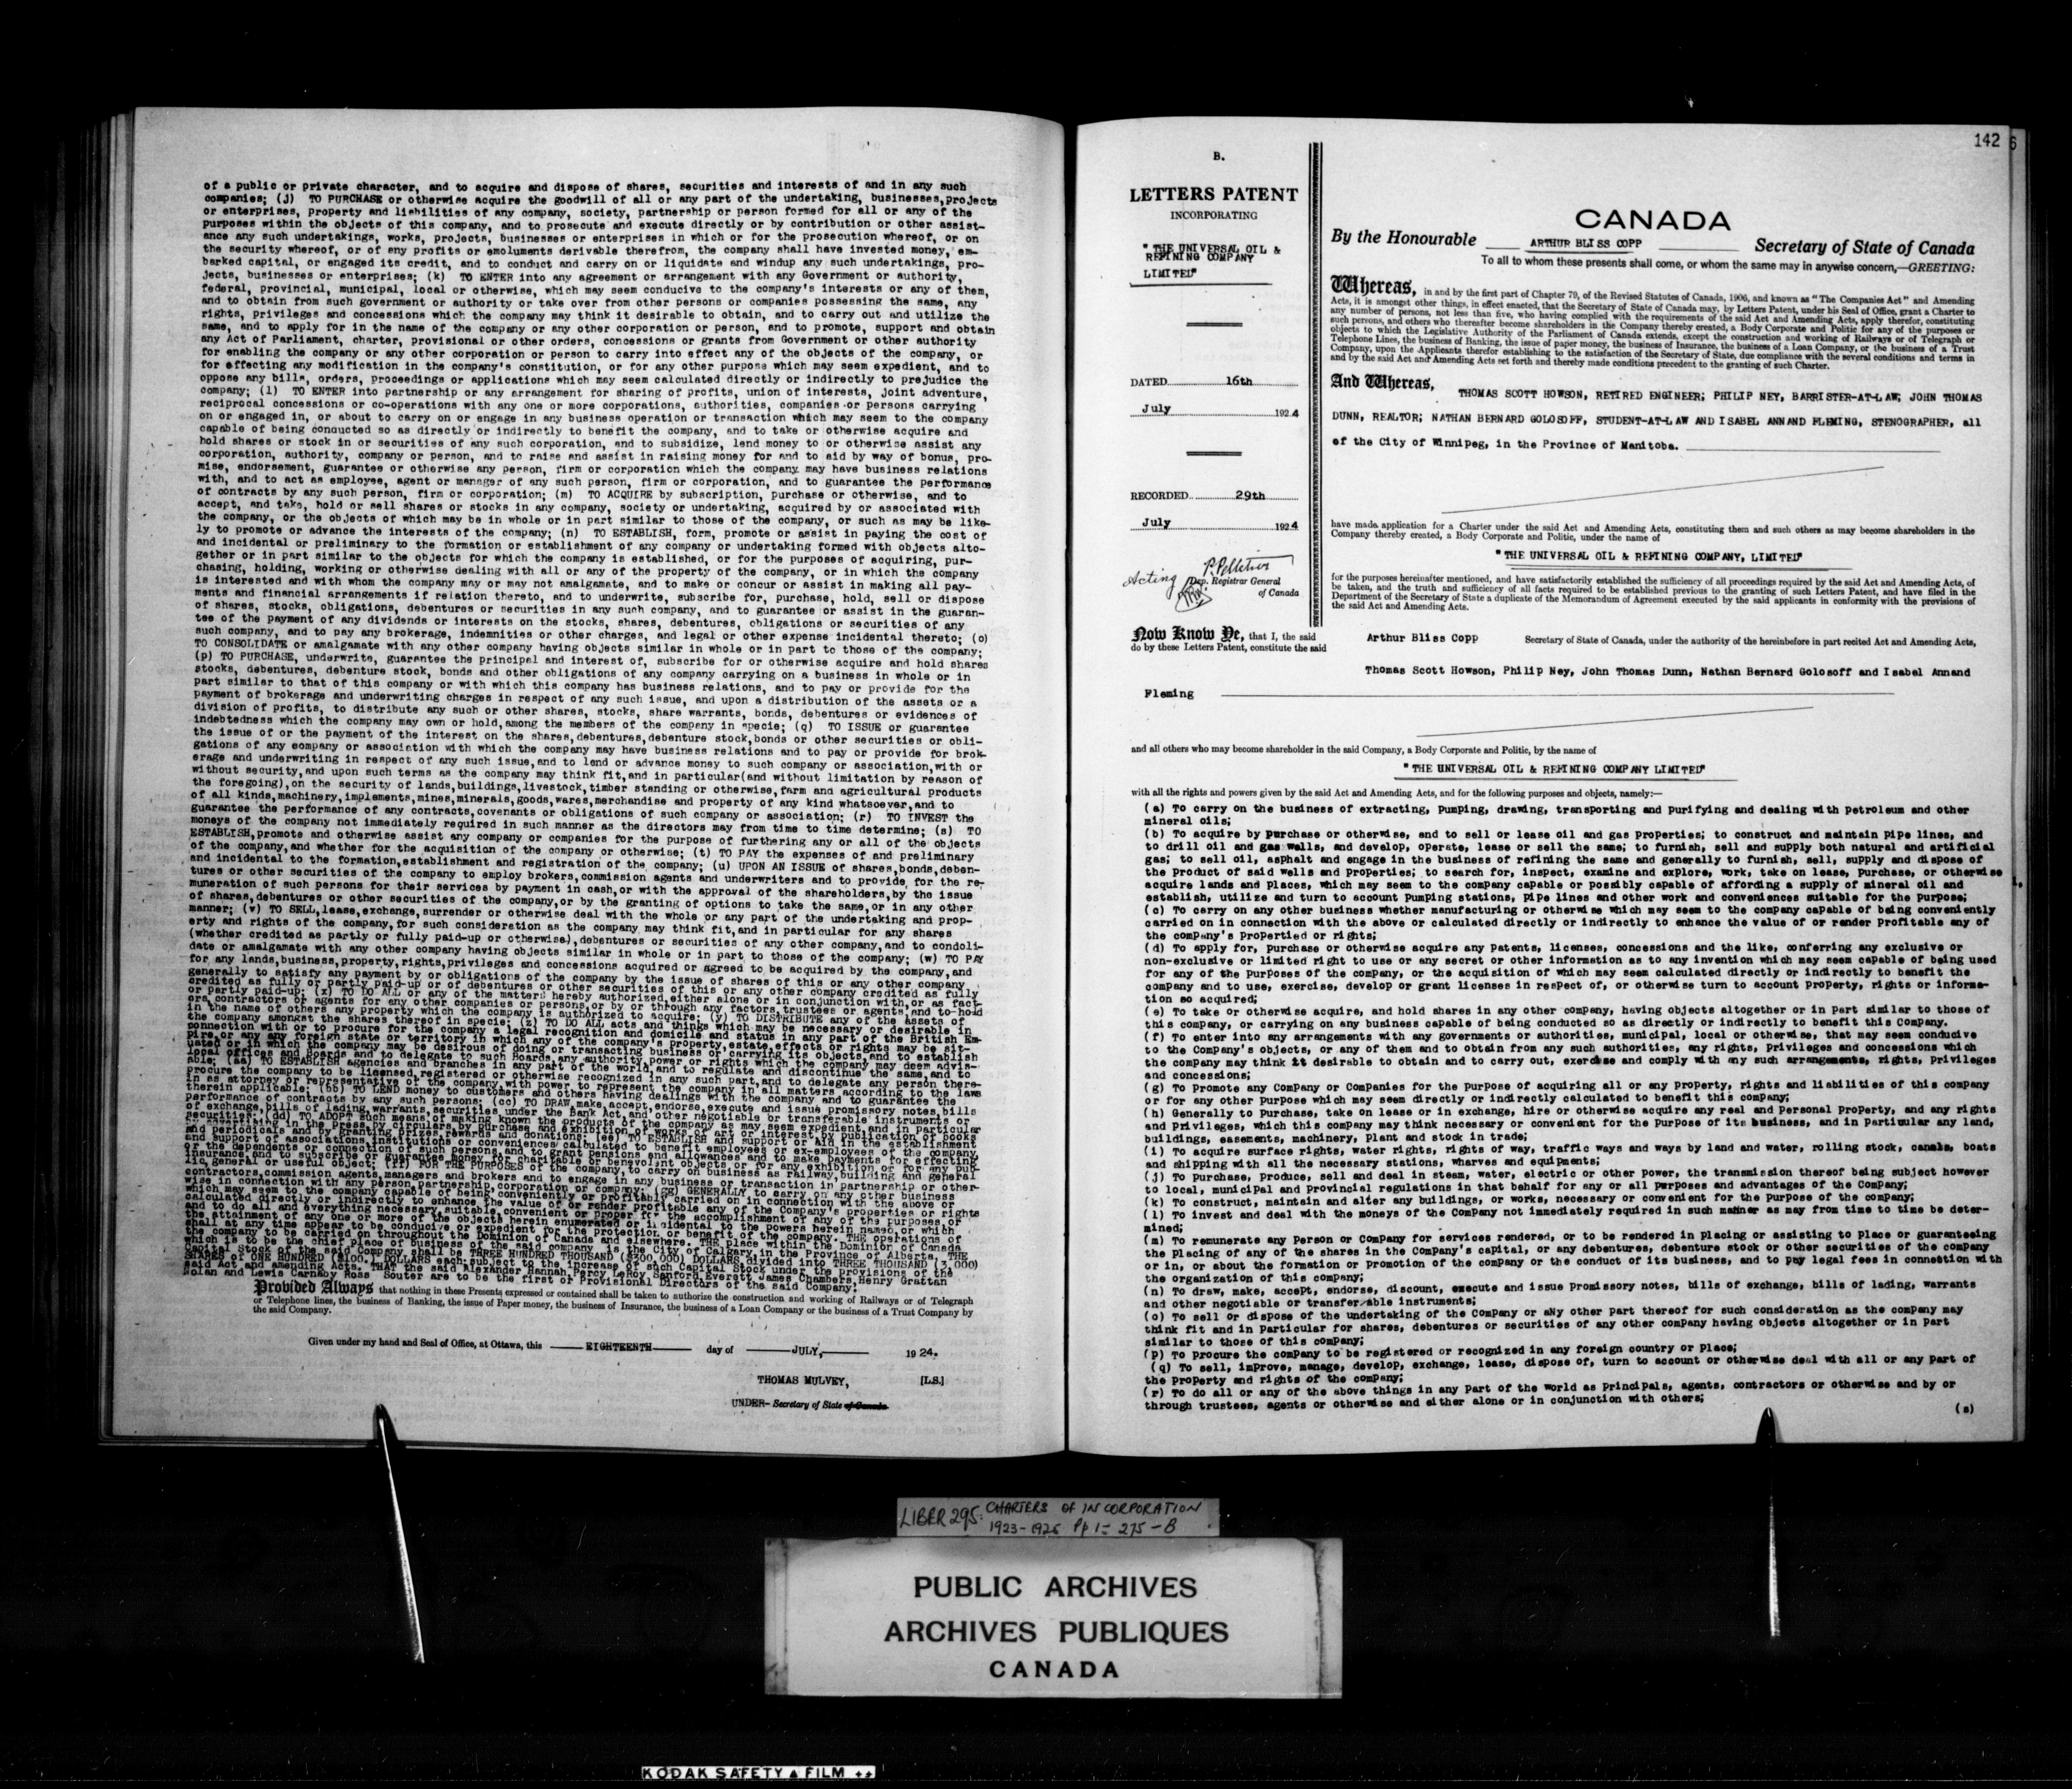 of a public or private character, and to acquire and dispose of shares, securities and interests of and in any such
companies; (j) TO PURCHASE or otherwise acquire the goodwill of all or any part of the undertaking, businesses,projects
or enterprises, property and liabilities of any company, society, partnership or person formed for all or any of the
purposes within the objects of this company, and to prosecute and execute directly or by contribution or other assist-
ance any such undertakings, works, projects, businesses or enterprises in which or for the prosecution whereof, or on
the security whereof, or of any profits or emoluments derivable therefrom, the company shall have invested money, em-
barked capital, or engaged its credit, and to conduct and carry on or liquidate and windup any such undertakings, pro-
jects, businesses or enterprises; (k) TO ENTER into any agreement or arrangement with any Government or authority,
federal, provincial, municipal, local or otherwise, which may seem conducive to the company's interests or any of them,
and to obtain from such government or authority or take over from other persons or companies possessing the same, any
rights, privileges and concessions which the company may think it desirable to obtain, and to carry out and utilize the
same, and to apply for in the name of the company or any other corporation or person, and to promote, support and obtain
any Act of Parliament, charter, provisional or other orders, concessions or grants from Government or other authority
for enabling the company or any other corporation or person to carry into effect any of the objects of the company, or
for effecting any modification in the company's constitution, or for any other purpose which may seem expedient, and to
oppose any bills, orders, proceedings or applications which may seem calculated directly or indirectly to prejudice the
company; (l) TO ENTER into partnership or any arrangement for sharing of profits, union of interests, joint adventure,
reciprocal concessions or co-operations with any one or more corporations, authorities, companies or persons carrying
on or engaged in, or about to carry on or engage in any business operation or transaction which may seem to the company
capable of being conducted so as directly or indirectly to benefit the company, and to take or otherwise acquire and
hold shares or stock in or securities of any such corporation, and to subsidize, lend money to or otherwise assist any
corporation, authority, company or person, and to raise and assist in raising money for and to aid by way of bonus, pro-
mise, endorsement, guarantee or otherwise any person, firm or corporation which the company may have business relations
with, and to act as employee, agent or manager of any such person, firm or corporation, and to guarantee the performance
of contracts by any such person, firm or corporation; (m) TO ACQUIRE by subscription, purchase or otherwise, and to
accept, and take, hold or sell shares or stocks in any company, society or undertaking, acquired by or associated with
the company, or the objects of which may be in whole or in part similar to those of the company, or such as may be like-
ly to promote or advance the interests of the company; (n) TO ESTABLISH, form, promote or assist in paying the cost of
and incidental or preliminary to the formation or establishment of any company or undertaking formed with objects alto-
gether or in part similar to the objects for which the company is established, or for the purposes of acquiring, pur-
chasing, holding, working or otherwise dealing with all or any of the property of the company, or in which the company
is interested and with whom the company may or may not amalgamate, and to make or concur or assist in making all pay-
ments and financial arrangements if relation thereto, and to underwrite, subscribe for, purchase, hold, sell or dispose
of shares, stocks, obligations, debentures or securities in any such company, and to guarantee or assist in the guaran-
tee of the payment of any dividends or interests on the stocks, shares, debentures, obligations or securities of any
such company, and to pay any brokerage, indemnities or other charges, and legal or other expense incidental thereto; (o)
TO CONSOLIDATE or amalgamate with any other company having objects similar in whole or in part to those of the company;
(p) TO PURCHASE, underwrite, guarantee the principal and interest of, subscribe for or otherwise acquire and hold shares
stocks, debentures, debenture stock, bonds and other obligations of any company carrying on a business in whole or in
part similar to that of this company or with which this company has business relations, and to pay or provide for the
payment of brokerage and underwriting charges in respect of any such issue, and upon a distribution of the assets or a
division of profits, to distribute any such or other shares, stocks, share warrants, bonds, debentures or evidences of
indebtedness which the company may own or hold,among the members of the company in specie; (q) TO ISSUE or guarantee
the issue of or the payment of the interest on the shares,debentures,debenture stock,bonds or other securities or obli-
gations of any company or association with which the company may have business relations and to pay or provide for brok-
erage and underwriting in respect of any such issue,and to lend or advance money to such company or association,with or
without security,and upon such terms as the company may think fit,and in particular(and without limitation by reason of
the foregoing),on the security of lands,buildings,livestock,timber standing or otherwise,farm and agricultural products
of all kinds,machinery,implements,mines,minerals,goods,wares,merchandise and property of any kind whatsoever,and to
guarantee the performance of any contracts,covenants or obligations of such company or association; (r) TO INVEST the
moneys of the company not immediately required in such manner as the directors may from time to time determine; (s) TO
ESTABLISH,promote and otherwise assist any company or companies for the purpose of furthering any or all of the objects
of the company,and whether for the acquisition of the company or otherwise; (t) TO PAY the expenses of and preliminary
and incidental to the formation,establishment and registration of the company; (u) UPON AN ISSUE of shares,bonds,deben-
tures or other securities of the company to employ brokers,commission agents and underwriters and to provide for the re-
muneration of such persons for their services by payment in cash,or with the approval of the shareholders,by the issue
of shares,debentures or other securities of the company,or by the granting of options to take the same,or in any other
manner; (v) TO SELL,lease,exchange,surrender or otherwise deal with the whole or any part of the undertaking and prop-
erty and rights of the company,for such consideration as the company may think fit,and in particular for any shares
(whether credited as partly or fully paid-up or otherwise),debentures or securities of any other company,and to condoli-
date or amalgamate with any other company having objects similar in whole or in part to those of the company; (w) TO PAY
for any lands,business,property,rights,privileges and concessions acquired or agreed to be acquired by the company,and
generally to satisfy any payment by or obligations of the company by the issue of shares of this or any other company
credited as fully or partly paid-up or of debentures or other securities of this or any other company credited as fully
or partly paid-up; (x) TO DO ALL or any of the matters hereby authorized,either alone or in conjunction with,or as fact-
ors,contractors or agents for any other companies or persons,or by or through any factors,trustees or agents,and to hold
in the name of others any property which the company is authorized to acquire; (y) TO DISTRIBUTE any of the assets of
the company amongst the shares thereof in specie; (z) TO DO ALL acts and thinks which may be necessary or desirable in
connection with or to procure for the company a legal recognition and domicile and status in any part of the British Em-
pire,or any any foreign state or territory in which any of the company's property,estate,effects or rights may be sit-
uated or in which the company may be desirous of doing or transacting business or carrying its objects,and to establish
local offices and Boards and to delegate to such Boards,any authority,power or rights which the company may deem advis-
able; (aa) TO ESTABLISH agencies and branches in any part of the world,and to regulate and discontinue the same,and to
procure the company to be licensed,registered or otherwise recognized in any such part,and to delegate any person there-
in as attorney or representative of the company,with power to represent the company in all matters according to the laws
therein applicable;(bb) TO LEND money to customers and others having dealings with the company and to guarantee the
performance of contracts by any such persons; (cc) TO DRAW,make,accept,endorse,execute and issue promissory notes,bills
of exchange,bills of lading,warrants,securities under the Bank Act,and other negotiable or transferable instruments or
securities; (dd) TO ADOPT such means of making known the products of the company as may seem expedient,and in particular
by advertising in the press,by circulars,by purchase and exhibition of works of art or interest,by publication of books
and periodicals and by granting prizes,rewards and donations; (ee) TO ESTABLISH and support or aid in the establishment
and support of associations,institutions or conveniences calculated to benefit employees or ex-employees of the company,
or the dependents or connection of such persons,and to grant pensions and allowances and to make payments for effecting
insurance,and to subscribe or guarantee money for charitable or benevolent objects or for any exhibition or for any pub-
lic,general or useful object; (ff) FOR THE PURPOSES of the company,to carry on business as railway,building and general
contractors,commission agents,managers and brokers and to engage in any business or transaction in partnership or other-
wise in connection with any person,partnership,corporation or company; (gg) GENERALLY to carry on any other business
which may seem to the company capable of being conveniently or profitably carried on in connection with the above or
calculated directly or indirectly to enhance the value of or render profitable any of the Company's properties or rights
and to do all and everything necessary,suitable,convenient or proper for the accomplishment of any of the purposes,or
the attainment of any one or more of the objects herein enumerated or incidental to the powers herein named,or which
shall at any time appear to be conducive or expedient for the protection or benefit of the company. THE operations of
the company to be carried on throughout the Dominion of Canada and elsewhere. THE place within the Dominion of Canada
which is to be the chief place of business of the said company is the City of Calgary,in the Province of Alberta. THE
Capital Stock of the said Company shall be THREE HUNDRED THOUSAND ($300,000) DOLLARS,divided into THREE THOUSAND (3,000)
SHARES of ONE HUNDRED ($100.) DOLLARS each,subject to the increase of such Capital Stock under the provisions of the
said Act and amending Acts. THAT the said Alexander Hannah,Percy LeRoy Sanford,Everett James Chambers,Henry Grattan
Nolan and Lewis Carnaby Ross Souter are to be the first or Provisional Directors of the said Company.
Provided Always that nothing in these Presents expressed or contained shall be taken to authorize the construction and working of Railways or of Telegraph
or Telephone lines, the business of Banking, the issue of Paper money, the business of Insurance, the business of a Loan Company or the business of a Trust Company by
the said Company.
Given under my hand and Seal of Office, at Ottawa, this EIGHTEENTH day of JULY, 1924.
THOMAS MULVEY, [L.S.]
UNDER- Secretary of State of Canada
142
B.
LETTERS PATENT
INCORPORATING
"THE UNIVERSAL OIL &
REFINING COMPANY
LIMITED"
DATED 16th
July 1924
RECORDED 29th
July 1924
P. Pelletier
Acting Dep. Registrar General
of Canada
CANADA
By the Honourable ARTHUR BLISS COPP Secretary of State of Canada
To all to whom these presents shall come, or whom the same may in anywise concern,—GREETING:
Whereas, in and by the first part of Chapter 79, of the Revised Statutes of Canada, 1906, and known as "The Companies Act" and Amending
Acts, it is amongst other things, in effect enacted, that the Secretary of State of Canada may, by Letters Patent, under his Seal of Office, grant a Charter to
any number of persons, not less than five, who having complied with the requirements of the said Act and Amending Acts, apply therefor, constituting
such persons, and others who thereafter become shareholders in the Company thereby created, a Body Corporate and Politic for any of the purposes or
objects to which the Legislative Authority of the Parliament of Canada extends, except the construction and working of Railways or of Telegraph or
Telephone Lines, the business of Banking, the issue of paper money, the business of Insurance, the business of a Loan Company, or the business of a Trust
Company, upon the Applicants therefor establishing to the satisfaction of the Secretary of State, due compliance with the several conditions and terms in
and by the said Act and Amending Acts set forth and thereby made conditions precedent to the granting of such Charter.
And Whereas, THOMAS SCOTT HOWSON, RETIRED ENGINEER; PHILIP NEY, BARRISTER-AT-LAW; JOHN THOMAS
DUNN, REALTOR; NATHAN BERNARD GOLOSOFF, STUDENT-AT-LAW AND ISABEL ANNAND FLEMING, STENOGRAPHER, all
of the City of Winnipeg, in the Province of Manitoba.
have made application for a Charter under the said Act and Amending Acts, constituting them and such others as may become shareholders in the
Company thereby created, a Body Corporate and Politic, under the name of
"THE UNIVERSAL OIL & REFINING COMPANY, LIMITED"
for the purposes hereinafter mentioned, and have satisfactorily established the sufficiency of all proceedings required by the said Act and Amending Acts, of
be taken, and the truth and sufficiency of all facts required to be established previous to the granting of such Letters Patent, and have filed in the
Department of the Secretary of State a duplicate of the Memorandum of Agreement executed by the said applicants in conformity with the provisions of
the said Act and Amending Acts.
Now Know Ye, that I, the said Arthur Bliss Copp Secretary of State of Canada, under the authority of the hereinbefore in part recited Act and Amending Acts,
do by these Letters Patent, constitute the said
Thomas Scott Howson, Philip Ney, John Thomas Dunn, Nathan Bernard Golosoff and Isabel Annand
Fleming
and all others who may become shareholder in the said Company, a Body Corporate and Politic, by the name of
"THE UNIVERSAL OIL & REFINING COMPANY LIMITED"
with all the rights and powers given by the said Act and Amending Acts, and for the following purposes and objects, namely:—
(a) To carry on the business of extracting, pumping, drawing, transporting and purifying and dealing with petroleum and other
mineral oils;
(b) To acquire by purchase or otherwise, and to sell or lease oil and gas properties; to construct and maintain pipe lines, and
to drill oil and gas wells, and develop, operate, lease or sell the same; to furnish, sell and supply both natural and artificial
gas; to sell oil, asphalt and engage in the business of refining the same and generally to furnish, sell, supply and dispose of
the product of said wells and properties; to search for, inspect, examine and explore, work, take on lease, purchase, or otherwise
acquire lands and places, which may seem to the company capable or possibly capable of affording a supply of mineral oil and
establish, utilize and turn to account pumping stations, pipe lines and other work and conveniences suitable for the purpose;
(c) To carry on any other business whether manufacturing or otherwise which may seem to the company capable of being conveniently
carried on in connection with the above or calculated directly or indirectly to enhance the value of or render profitable any of
the company's propertied or rights;
(d) To apply for, purchase or otherwise acquire any patents, licenses, concessions and the like, conferring any exclusive or
non-exclusive or limited right to use or any secret or other information as to any invention which may seem capable of being used
for any of the purposes of the company, or the acquisition of which may seem calculated directly or indirectly to benefit the
company and to use, exercise, develop or grant licenses in respect of, or otherwise turn to account property, rights or informa-
tion so acquired;
(e) To take or otherwise acquire, and hold shares in any other company, having objects altogether or in part similar to those of
this company, or carrying on any business capable of being conducted so as directly or indirectly to benefit this Company.
(f) To enter into any arrangements with any governments or authorities, municipal, local or otherwise, that may seem conducive
to the Company's objects, or any of them and to obtain from any such authorities, any rights, privileges and concessions which
the company may think it desirable to obtain and to carry out, exercise and comply with any such arrangements, rights, privileges
and concessions;
(g) To promote any Company or Companies for the purpose of acquiring all or any property, rights and liabilities of this company
or for any other purpose which may seem directly or indirectly calculated to benefit this company;
(h) Generally to purchase, take on lease or in exchange, hire or otherwise acquire any real and personal property, and any rights
and privileges, which this company may think necessary or convenient for the purpose of its business, and in particular any land,
buildings, easements, machinery, plant and stock in trade;
(i) To acquire surface rights, water rights, rights of way, traffic ways and ways by land and water, rolling stock, canals, boats
and shipping with all the necessary stations, wharves and equipments;
(j) To purchase, produce, sell and deal in steam, water, electric or other power, the transmission thereof being subject however
to local, municipal and provincial regulations in that behalf for any or all purposes and advantages of the Company;
(k) To construct, maintain and alter any buildings, or works, necessary or convenient for the purpose of the company;
(l) To invest and deal with the moneys of the Company not immediately required in such manner as may from time to time be deter-
mined;
(m) To remunerate any person or Company for services rendered, or to be rendered in placing or assisting to place or guaranteeing
the placing of any of the shares in the Company's capital, or any debentures, debenture stock or other securities of the company
or in, or about the formation or promotion of the company or the conduct of its business, and to pay legal fees in connection with
the organization of this company;
(n) To draw, make, accept, endorse, discount, execute and issue promissory notes, bills of exchange, bills of lading, warrants
and other negotiable or transferable instruments;
(o) To sell or dispose of the undertaking of the Company or any other part thereof for such consideration as the company may
think fit and in particular for shares, debentures or securities of any other company having objects altogether or in part
similar to those of this company;
(p) To procure the company to be registered or recognized in any foreign country or place;
(q) To sell, improve, manage, develop, exchange, lease, dispose of, turn to account or otherwise deal with all or any part of
the property and rights of the company;
(r) To do all or any of the above things in any part of the world as principals, agents, contractors or otherwise and by or
through trustees, agents or otherwise and either alone or in conjunction with others;
(s)
LIBER 295: CHARTERS OF INCORPORATION
1923-1926 Pp 1-275-B
PUBLIC ARCHIVES
ARCHIVES PUBLIQUES
CANADA
KODAK SAFETY FILM